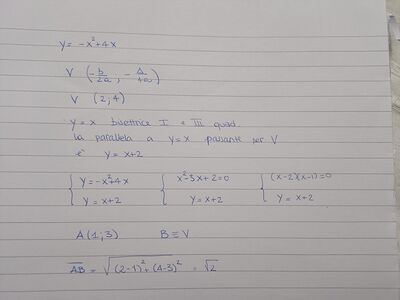 y = -x²+4x
V (-b/2a , -Δ/4a)
V (2,4)
y=x bisettrice I e III quad.
la parallela a y=x passante per V
è y = x+2
{ y=-x²+4x { x²-3x+2=0 { (x-2)(x-1)=0
y = x+2 y = x+2 y = x+2
A(1;3) B≡V
AB = √(2-1)²+(4-3)² = √2